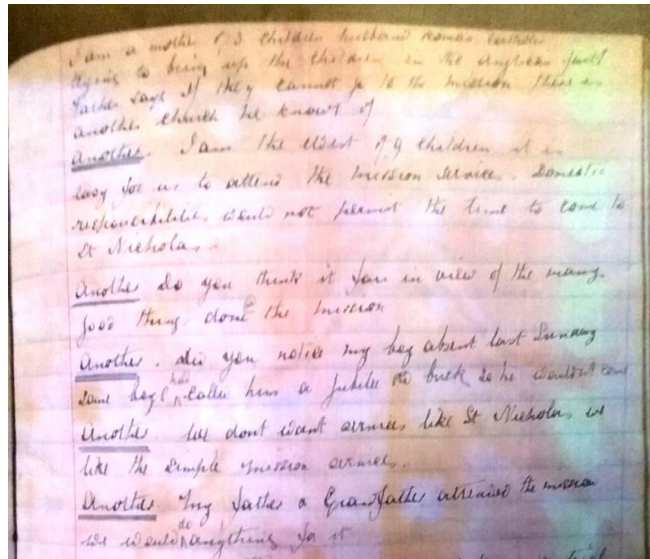 I am a mother of 3 children husband Roman Catholic
trying to bring up the children in the Anglican faith
Father says if they cannot go to the mission there is
another church he knows of
Another. I am the eldest of 9 children it is
easy for us to attend the mission services. Domestic
responsibilities would not permit the time to come to
St Nicholas.
Another Do you think it fair in view of the many
good things done the mission
Another. Did you notice my boy absent last Sunday
some boy had called him a Jubilee buck so he wouldn't come
Another. We dont want services like St Nicholas we
like the simple mission services.
Another. My father & Grandfather attended the mission
we would do anything for it